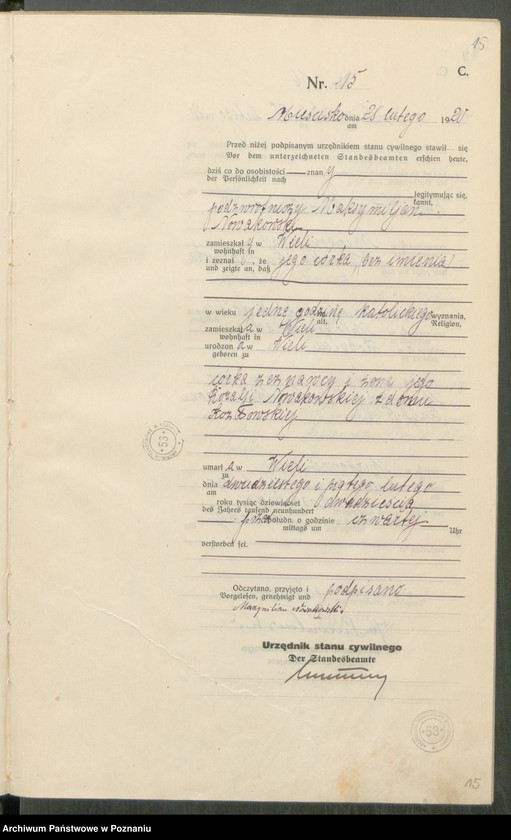 15
C.
Nr. 15
Mieścisko dnia 28 lutego 1920
am
Przed niżej podpisanym urzędnikiem stanu cywilnego stawił się
Vor dem unterzeichneten Standesbeamten erschien heute,
dziś co do osobistości — znany
der Persönlichkeit nach
legitymując się,
kannt,
podzwrotniczy Maksymiljan
Nowakowski
zamieszkały w Wieli
wohnhaft in
i zeznał, że jego córka (bez imienia)
und zeigte an, daß
w wieku jedną godzinę katolickiego wyznania,
alt, Religion,
zamieszkała w Wieli
wohnhaft in
urodzona w Wieli
geboren zu
córka zeznawcy i żony jego
Rozalji Nowakowskiej z domu
Kozłowskiej
umarła w Wieli
zu
dnia dwudziestego i piątego lutego
am
roku tysiąc dziewięćset dwudziestą
des Jahres tausend neunhundert
przed połudn. o godzinie czwartej
mittags um Uhr
verstorben sei.
Odczytano, przyjęto i podpisano
Vorgelesen, genehmigt und
Maxymilian Nowakowski
Urzędnik stanu cywilnego
Der Standesbeamte
53
53
15
Archiwum Państwowe w Poznaniu